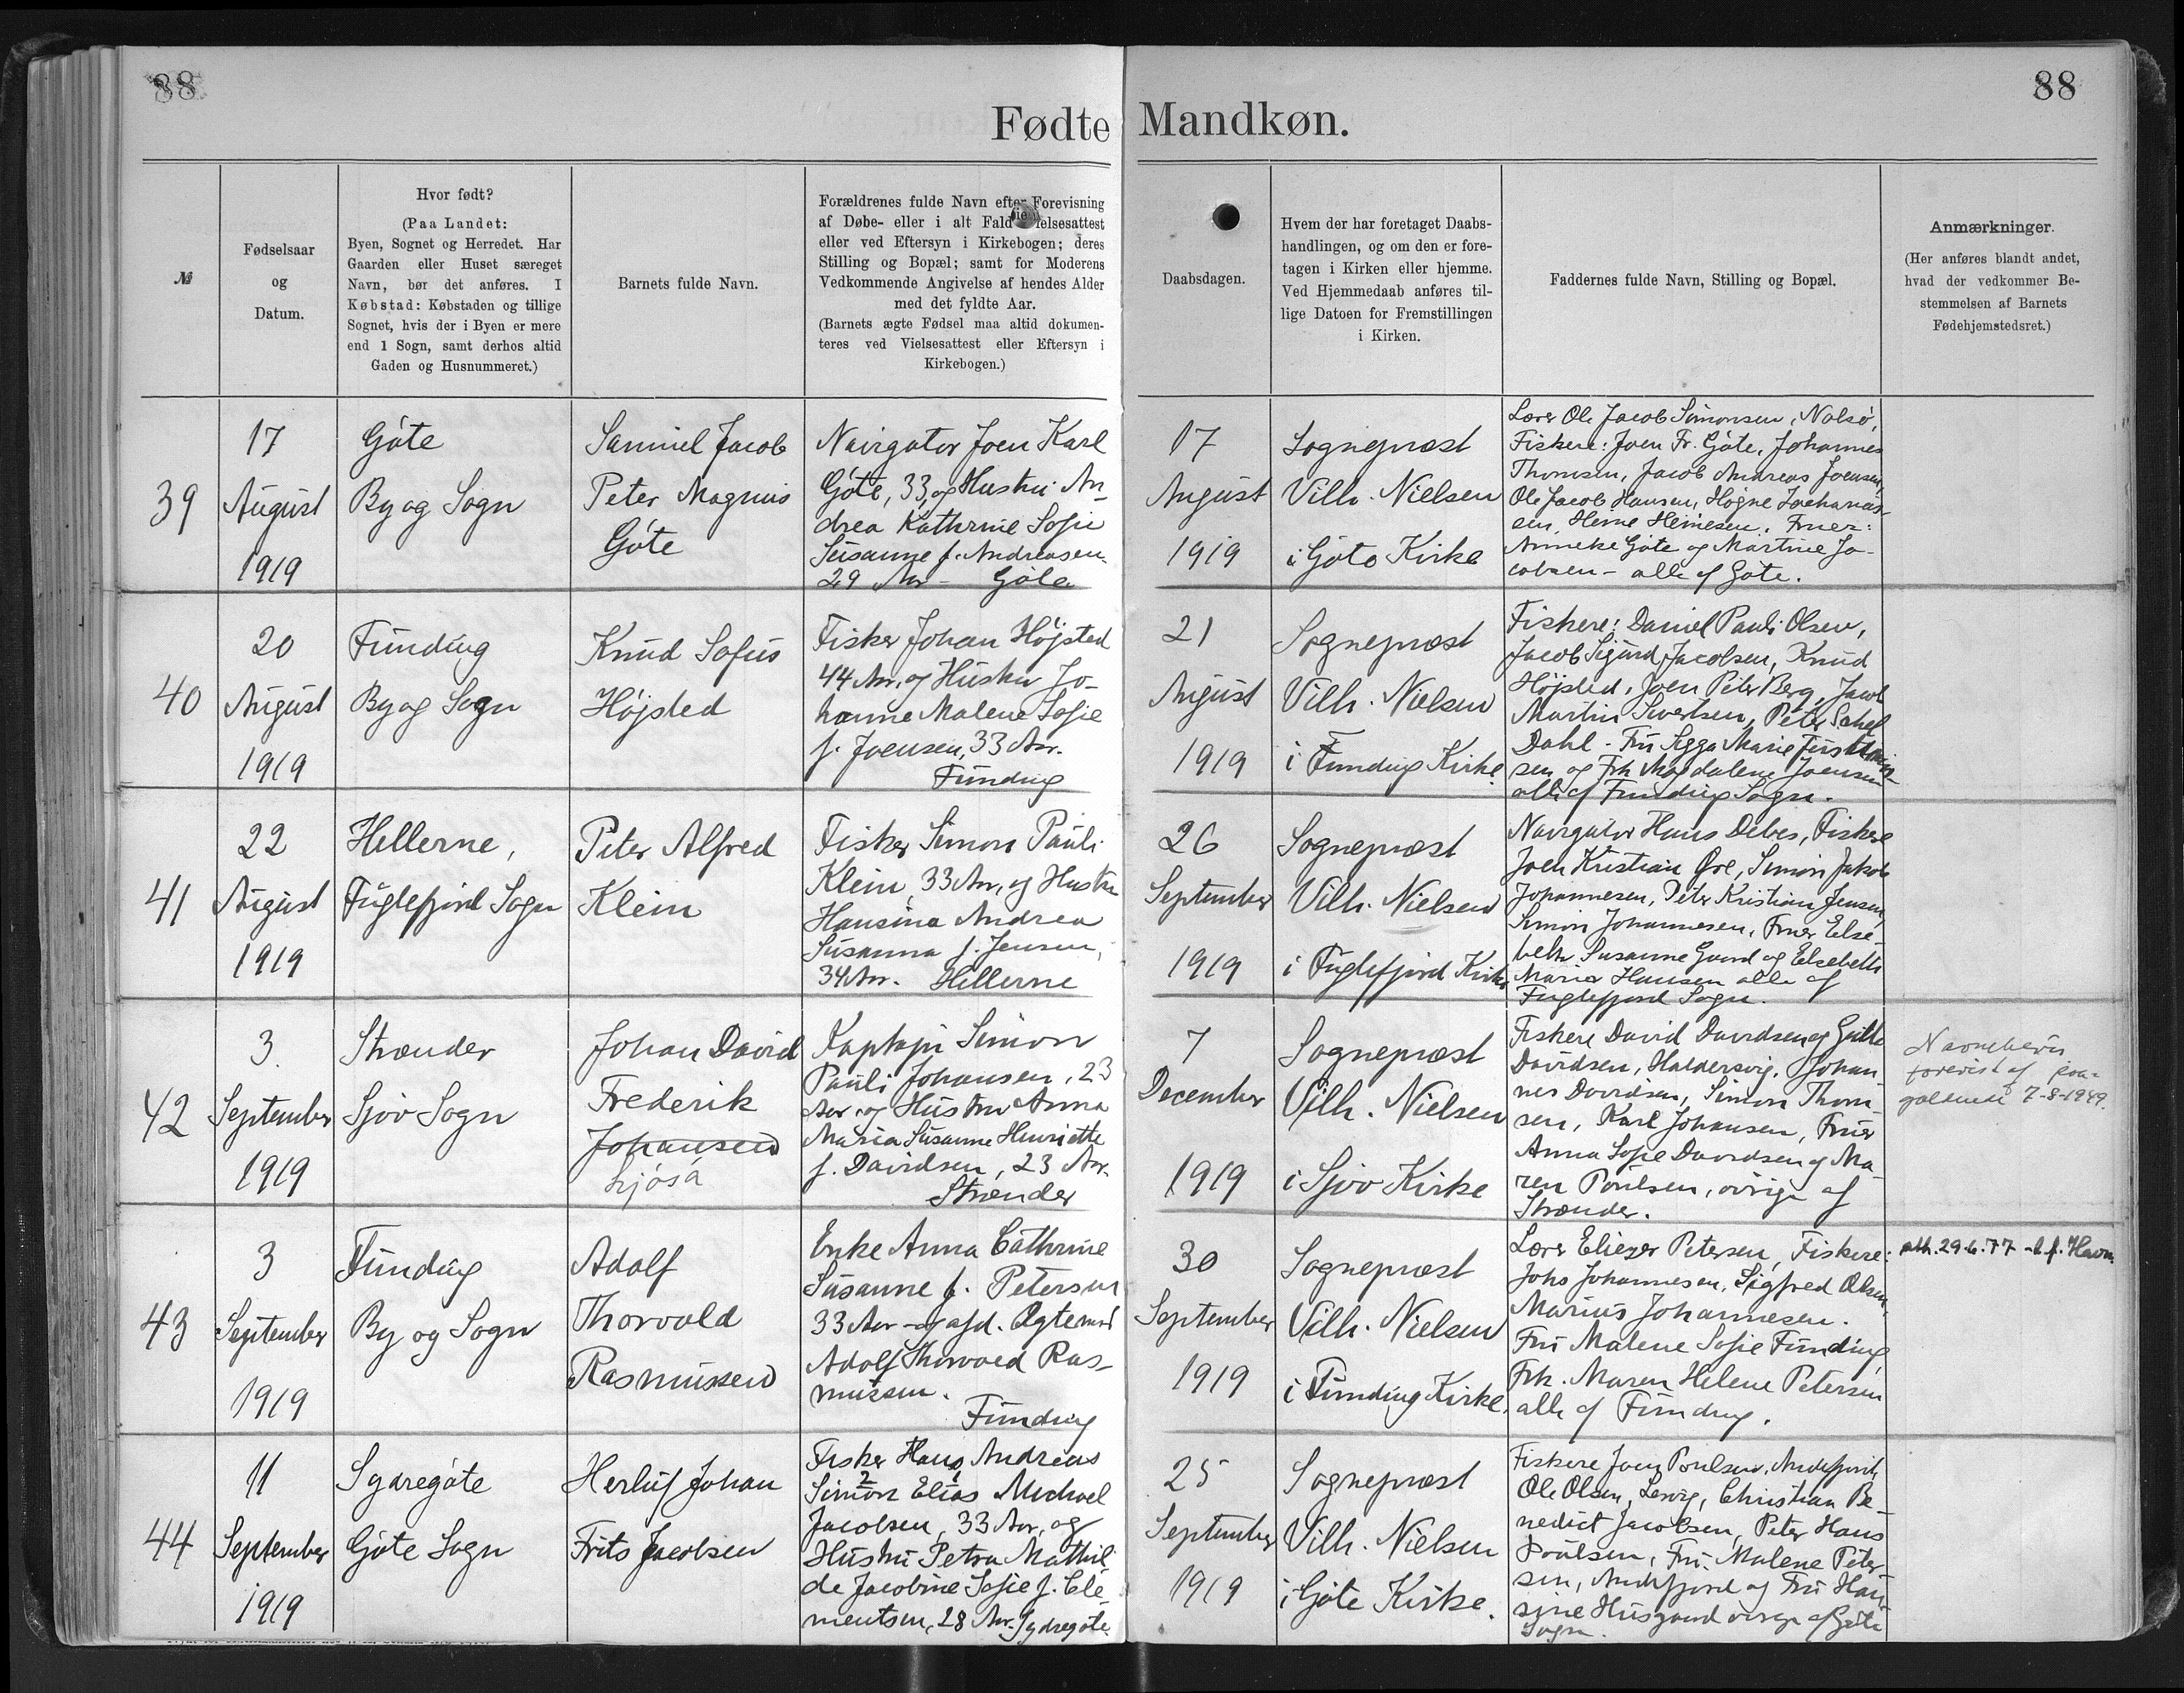 88
88
Fødte Mandkøn.
№
Fødselsaar
og
Datum.
Hvor født?
(Paa Landet:
Byen, Sognet og Herredet. Har
Gaarden eller Huset særeget
Navn, bør det anføres. I
Købstad: Købstaden og tillige
Sognet, hvis der i Byen er mere
end 1 Sogn, samt derhos altid
Gaden og Husnummeret.)
Barnets fulde Navn.
Forældrenes fulde Navn efter Forevisning
af Døbe- eller i alt Fald Vielsesattest
eller ved Eftersyn i Kirkebogen; deres
Stilling og Bopæl; samt for Moderens
Vedkommende Angivelse af hendes Alder
med det fyldte Aar.
(Barnets ægte Fødsel maa altid dokumen-
teres ved Vielsesattest eller Eftersyn i
Kirkebogen.)
Daabsdagen.
Hvem der har foretaget Daabs-
handlingen, og om den er fore-
tagen i Kirken eller hjemme.
Ved Hjemmedaab anføres til-
lige Datoen for Fremstillingen
i Kirken.
Faddernes fulde Navn, Stilling og Bopæl.
Anmærkninger.
(Her anføres blandt andet,
hvad der vedkommer Be-
stemmelsen af Barnets
Fødehjemstedsret.)
39
17
August
1919
Góte
By og Sogn
Samuel Jacob
Peter Magnus
Góte
Navigatør Joen Karl
Góte, 33, og Hustru An-
drea Kathrine Sofie
Susanne f. Andreasen
29 Aar - Góte
17
August
1919
Sognepræst
Vilh. Nielsen
i Góte Kirke
Lærer Ole Jacob Simonsen, Nolsó,
Fiskere: Joen Fr. Góte, Johannes
Thomsen, Jacob Andreas Joensen,
Ole Jacob Hansen, Høgne Joehannes-
sen, Heine Heinesen. Fruer:
Anneke Góte og Martine Ja-
cobsen - alle af Góte.
40
20
August
1919
Funding
By og Sogn
Knud Sofus
Højsted
Fisker Johan Højsted
44 Aar, og Hustru Jo-
hanne Malene Sofie
f. Joensen, 33 Aar.
Funding
21
August
1919
Sognepræst
Vilh. Nielsen
i Funding Kirke
Fiskere: Daniel Pauli Olsen,
Jacob Sigurd Jacobsen, Knud
Højsted, Joen Peter Berg, Jacob
Martin Sivertsen, Peter
Dahl. Fru Sigga Marie
sen og Frk. Magdalene Joensen
alle af Funding Sogn.
41
22
August
1919
Hellerne,
Fuglefjord Sogn
Peter Alfred
Klein
Fisker Simon Pauli
Klein 33 Aar, og Hustru
Hansina Andrea
Susanna f. Jensen,
34 Aar. Hellerne
26
September
1919
Sognepræst
Vilh. Nielsen
i Fuglefjord Kirke
Navigatør Hans Debes, Fiskere
Joen Kristian Øre, Simon Jakob
Johannesen, Peter Kristian Jensen,
Simon Johannesen, Fruer Else-
beth Susanne Gaard og Elsebeth
Maria Hansen alle af
Fuglefjord Sogn.
42
3.
September
1919
Strænder
Sjóv Sogn
Johan David
Frederik
Johansen
Ljósá
Kaptajn Simon
Pauli Johansen, 23
Aar, og Hustru Anna
Maria Susanne Henriette
f. Davidsen, 23 Aar.
Strænder
7
December
1919
Sognepræst
Vilh. Nielsen
i Sjóv Kirke
Fiskere David Davidsen og Gutte
Davidsen, Haldersvig, Johan-
nes Davidsen, Simon Thom-
sen, Karl Johansen, Fruer
Anna Sofie Davidsen og Ma-
ren Poulsen, øvrige af
Strænder.
Navnebevis
forevist af paa-
gældende 7-8-1949.
43
3
September
1919
Funding
By og Sogn
Adolf
Thorvald
Rasmussen
Enke Anna Cathrine
Susanne f. Petersen
33 Aar - og afd. Ægtemand
Adolf Thorvald Ras-
mussen.
Funding
30
September
1919
Sognepræst
Vilh. Nielsen
i Funding Kirke.
Lærer Eliezer Petersen, Fiskere:
Johs Johannesen, Sigfred Olsen,
Marius Johannesen.
Fru Malene Sofie Funding,
Frk. Maren Helene Petersen
alle af Funding.
att. 29.6.77 - t.f. Havn.
44
11
September
1919
Sydregóte
Góte Sogn
Herluf Johan
Frits Jacobsen
Fisker Hans Andreas
2 1
Simon Elias Michael
Jacobsen, 33 Aar, og
Hustru Petra Mathil-
de Jacobine Sofie f. Cle-
mentsen, 28 Aar. Sydregóte
25
September
1919
Sognepræst
Vilh. Nielsen
i Góte Kirke.
Fiskere Joen Poulsen, Andefjord,
Ole Olsen, Lervig, Christian Be-
nedict Jacobsen, Peter Hans
Poulsen, Fru Malene Peter-
sen, Andefjord og Fru Han-
sine Husgaard øvrige af Góte
Sogn.